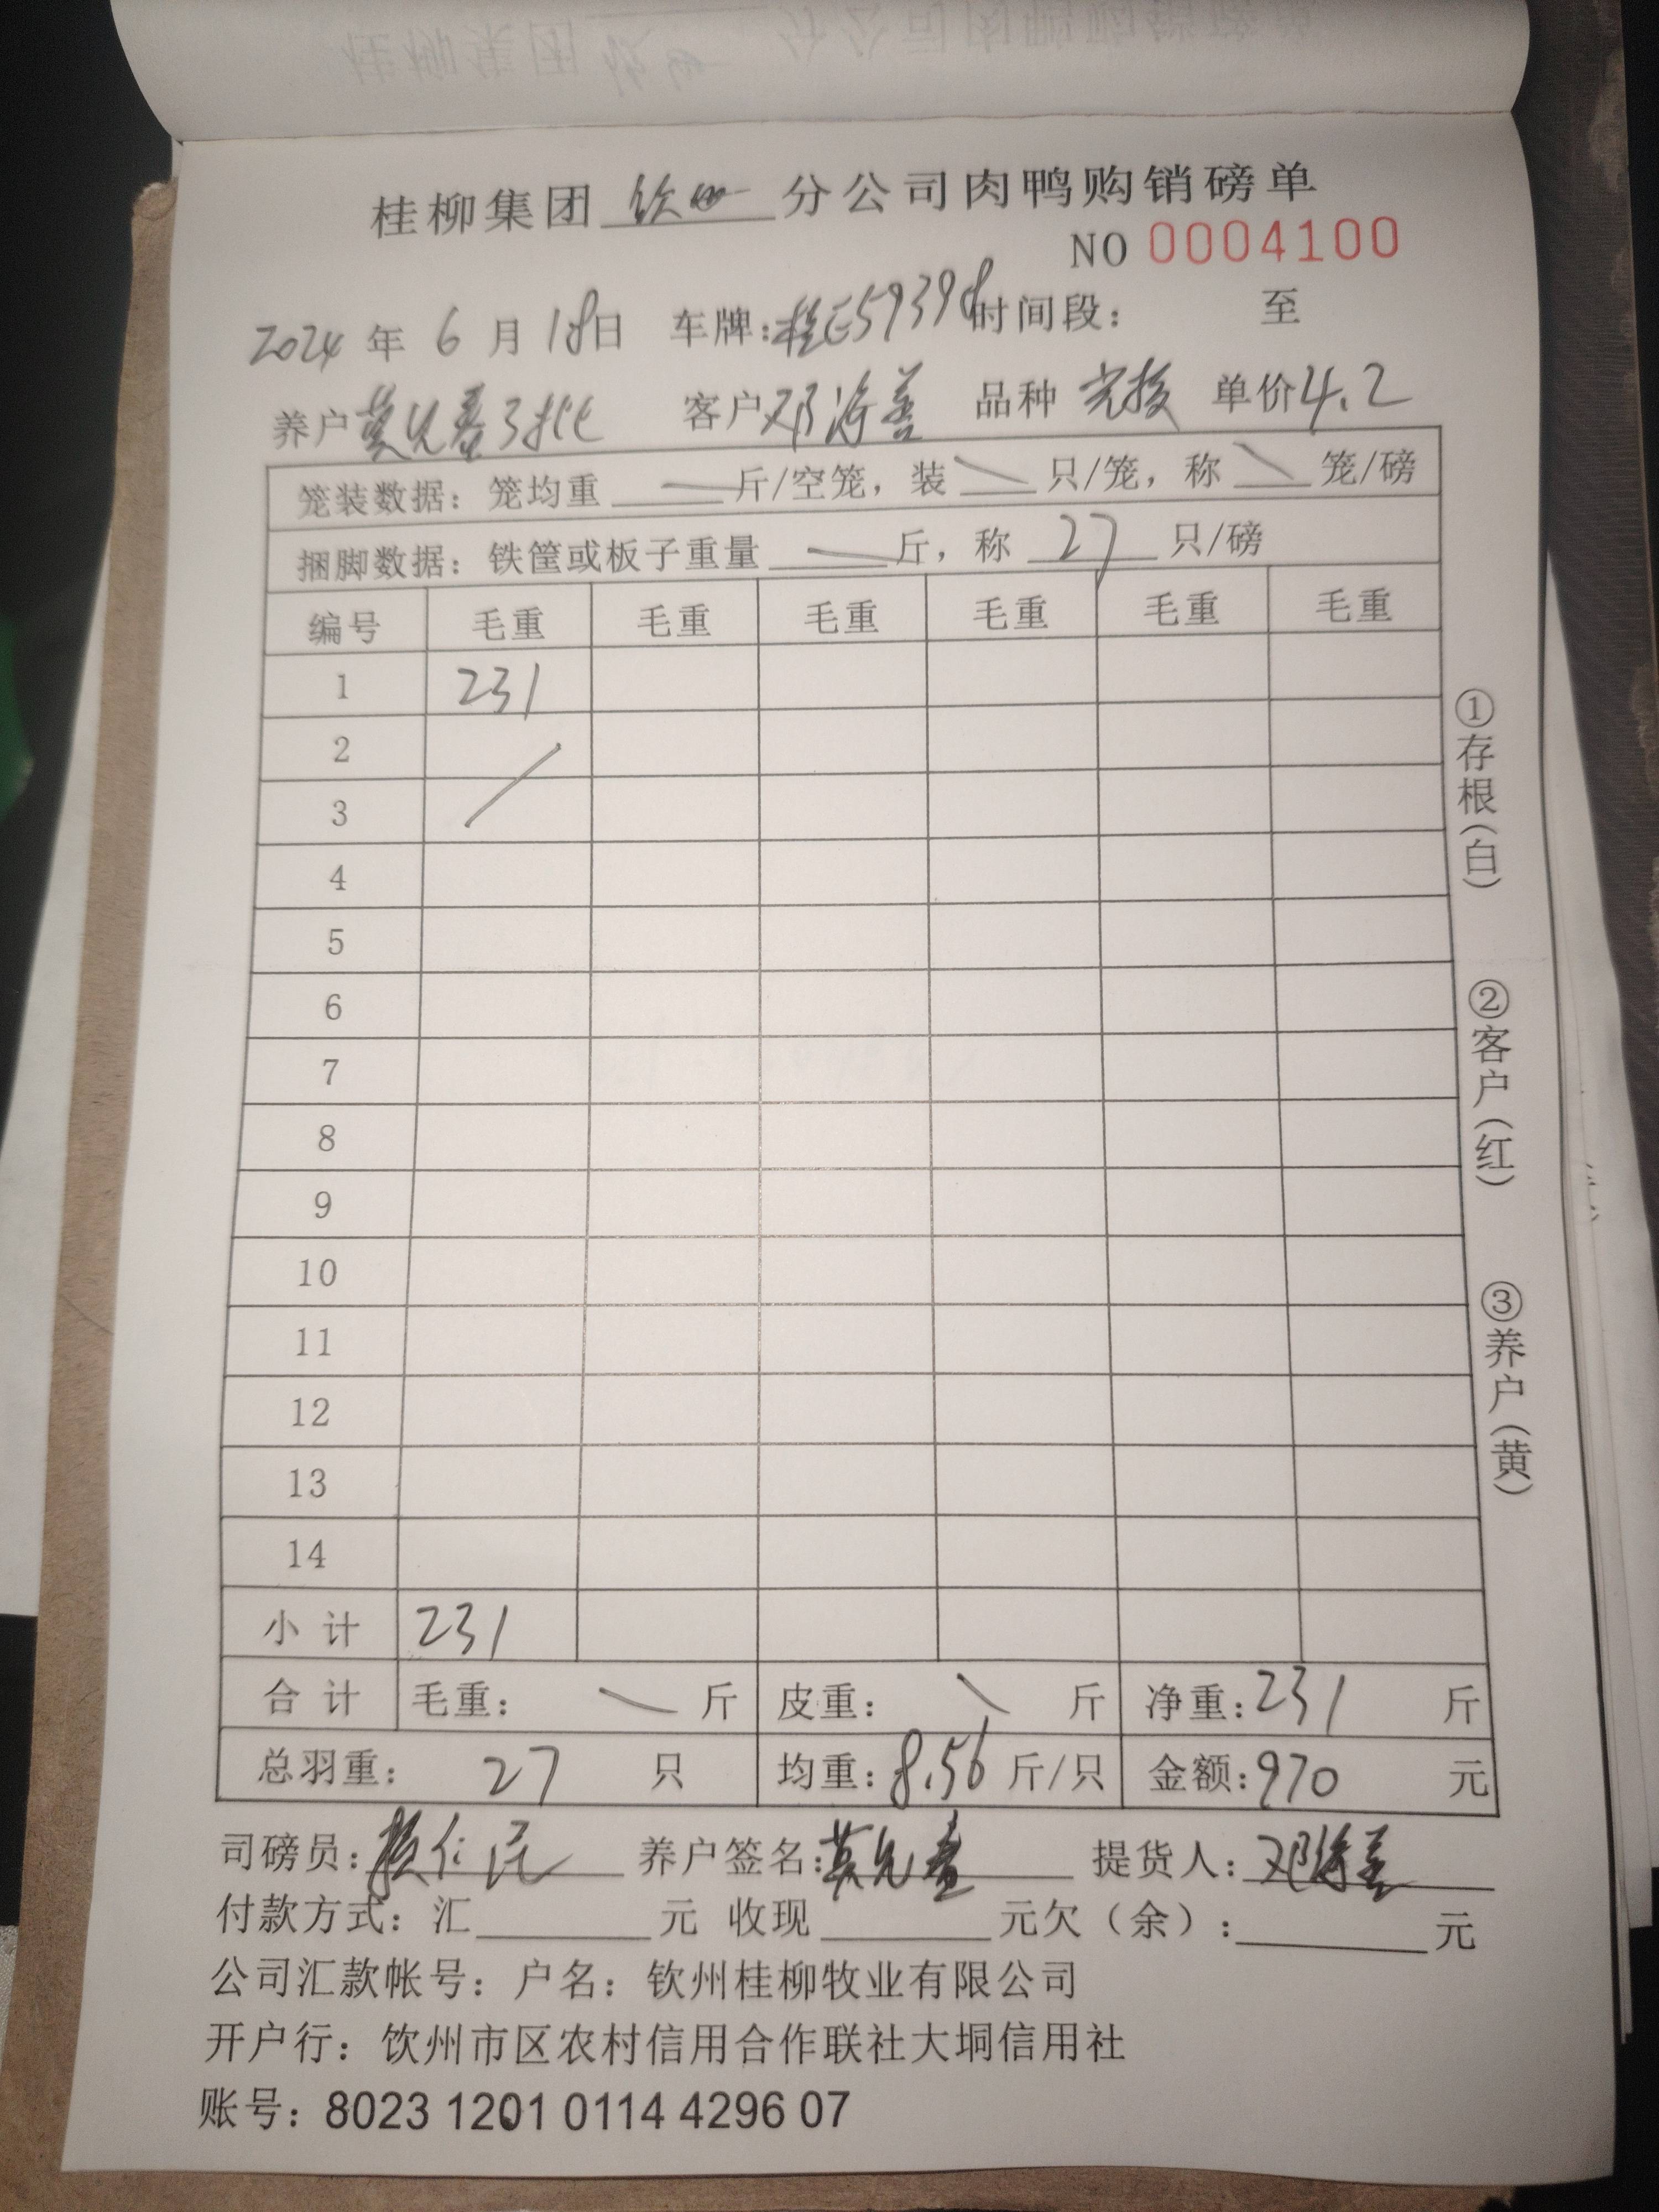 桂柳集团 钦州 分公司肉鸭购销磅单
NO 0004100
2024 年 6 月 18 日 车牌:桂E59398 时间段: 至
养户 莫先春3批 客户 邓海善 品种 单价 4.2
笼装数据: 笼均重 — 斤/空笼, 装 \ 只/笼, 称 \ 笼/磅
捆脚数据: 铁筐或板子重量 — 斤, 称 27 只/磅
编号 毛重 毛重 毛重 毛重 毛重 毛重
1 231
2
3
4
5
6
7
8
9
10
11
12
13
14
小 计 231
合 计 毛重: \ 斤 皮重: \ 斤 净重: 231 斤
总羽重: 27 只 均重: 8.56 斤/只 金额: 970 元
司磅员: 养户签名: 莫先春 提货人: 邓海善
付款方式: 汇 元 收现 元欠(余): 元
公司汇款帐号: 户名: 钦州桂柳牧业有限公司
开户行: 钦州市区农村信用合作联社大垌信用社
账号: 8023 1201 0114 4296 07
①存根(白)
②客户(红)
③养户(黄)